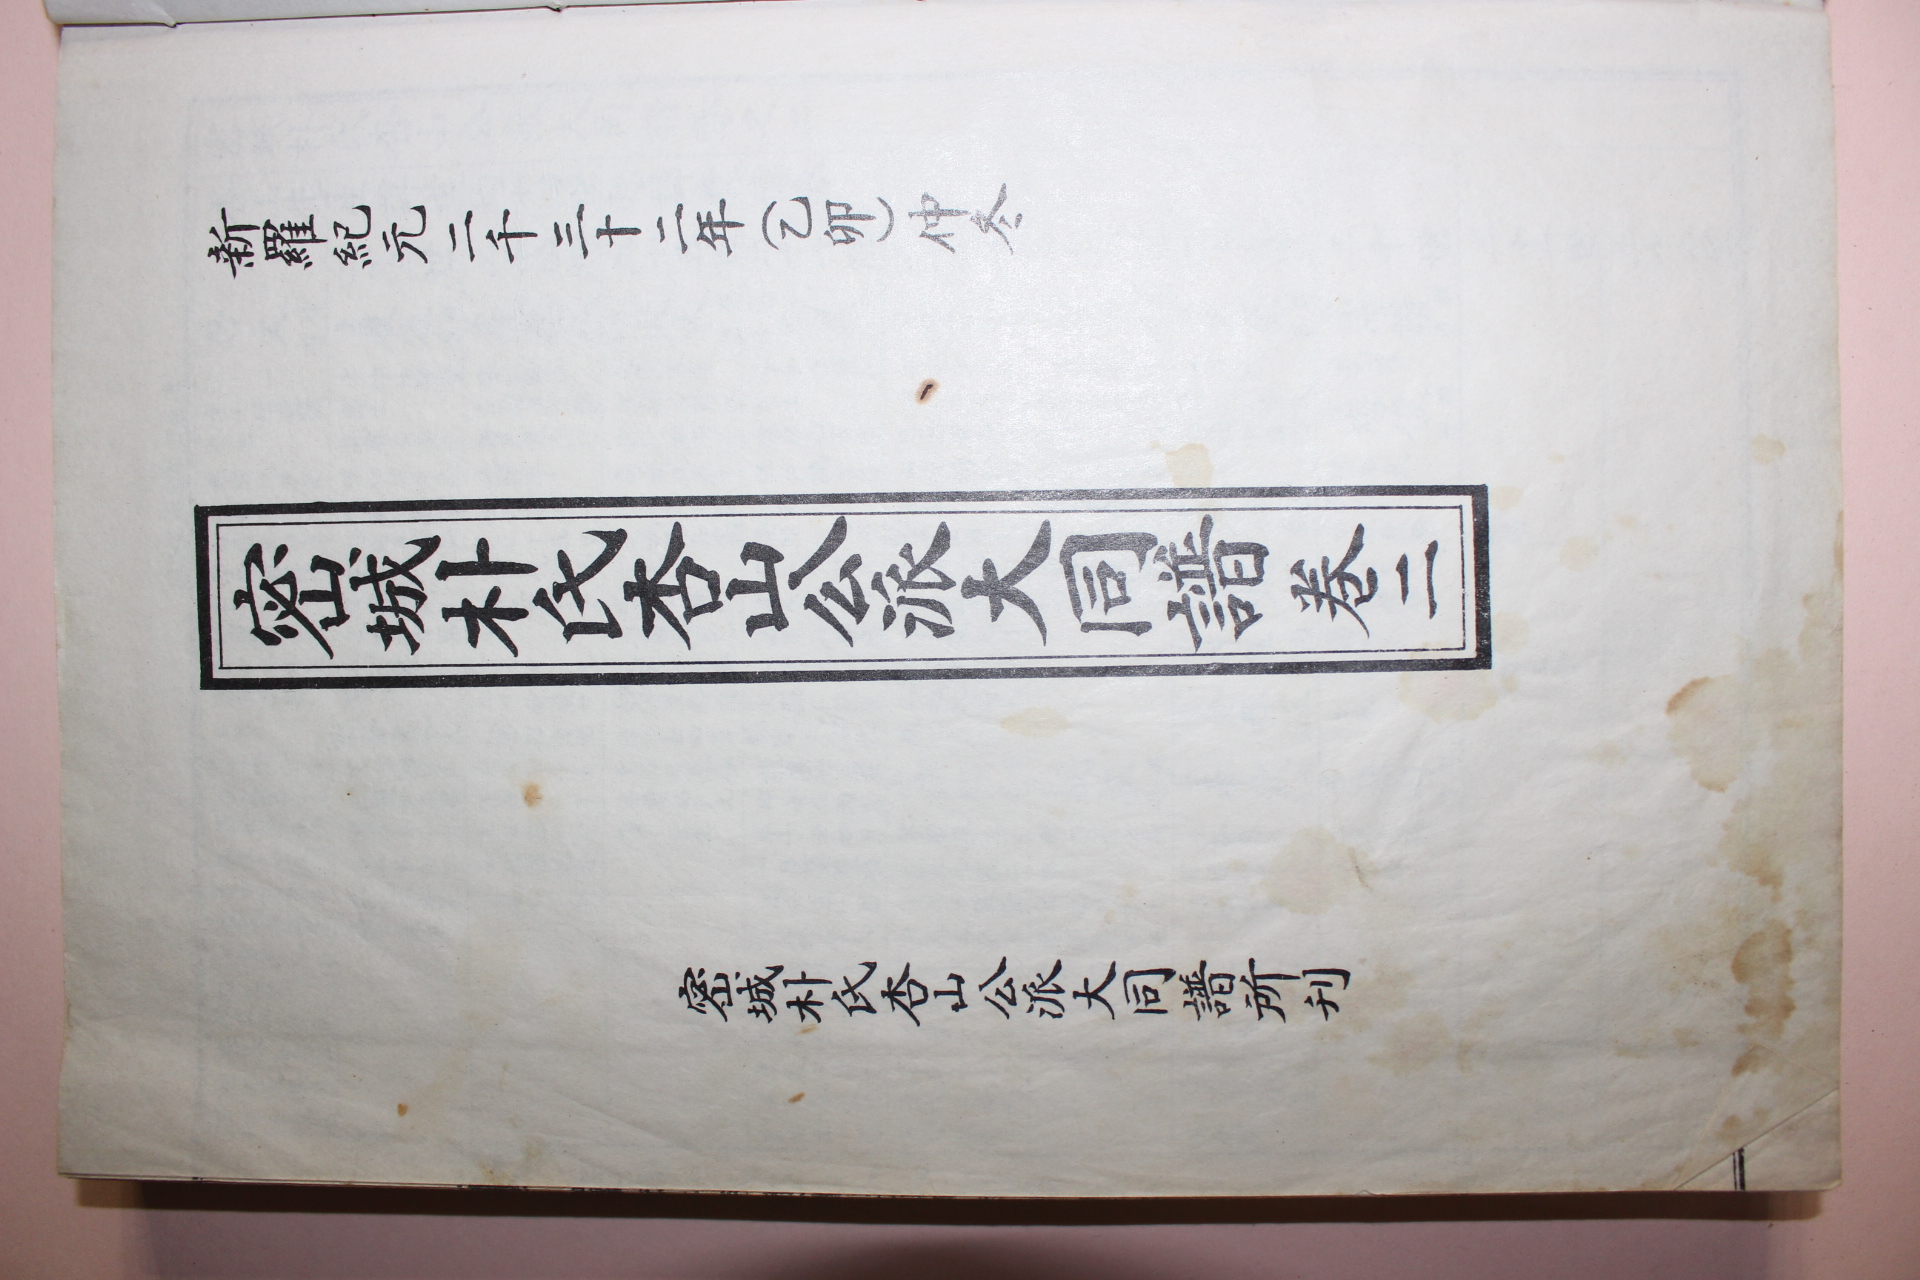 新羅紀元二千三十二年(乙卯)仲冬
密城朴氏杏山公派大同譜 卷二
密城朴氏杏山公派大同譜所刊